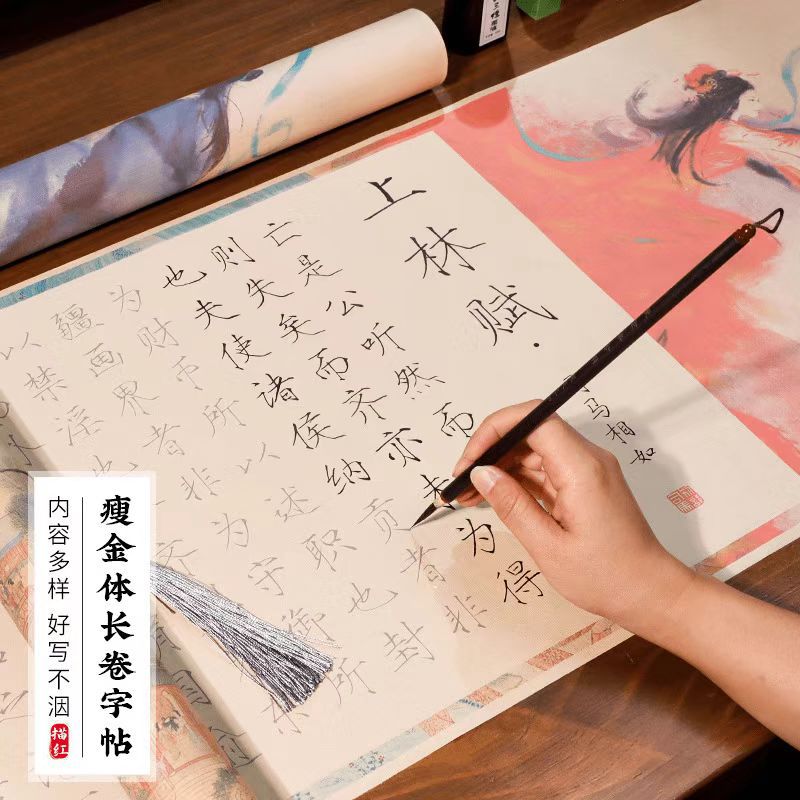 上林赋
马相如
亡是公听然而
则失矣而齐亦未为得
也夫使诸侯纳贡者非
为财币所以述职也封
疆画界者非为守御所
以禁淫也
齐
东
瘦金体长卷字帖
内容多样 好写不洇
描红